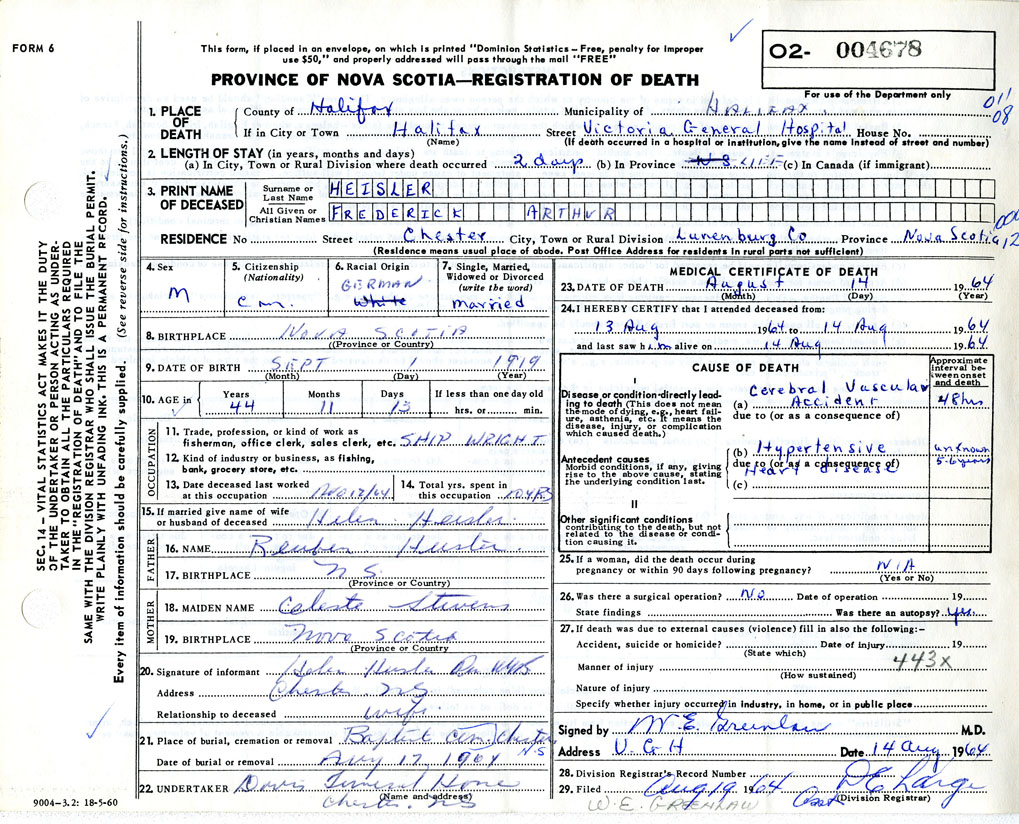 FORM 6
This form, if placed in an envelope, on which is printed "Dominion Statistics – Free, penalty for improper
use $50," and properly addressed will pass through the mail "FREE"
PROVINCE OF NOVA SCOTIA—REGISTRATION OF DEATH
02- 004678
For use of the Department only
011
08
1. PLACE OF DEATH
County of Halifax Municipality of HALIFAX
If in City or Town Halifax Street Victoria General Hospital House No.
(Name) (If death occurred in a hospital or institution, give the name instead of street and number)
2. LENGTH OF STAY (in years, months and days)
(a) In City, Town or Rural Division where death occurred 2 days (b) In Province N S LIFE (c) In Canada (if immigrant)
3. PRINT NAME OF DECEASED
Surname or Last Name HEISLER
All Given or Christian Names FREDERICK ARTHUR
RESIDENCE No Street Chester City, Town or Rural Division Lunenburg Co Province Nova Scotia 12
(Residence means usual place of abode. Post Office Address for residents in rural parts not sufficient)
4. Sex
M
5. Citizenship
(Nationality)
6. Racial Origin
GERMAN
White
7. Single, Married,
Widowed or Divorced
(write the word)
married
8. BIRTHPLACE NOVA SCOTIA
(Province or Country)
9. DATE OF BIRTH SEPT 1 1919
(Month) (Day) (Year)
10. AGE in
Years Months Days If less than one day old
44 11 13 hrs. or min.
OCCUPATION
11. Trade, profession, or kind of work as
fisherman, office clerk, sales clerk, etc. SHIP WRIGHT
12. Kind of industry or business, as fishing,
bank, grocery store, etc.
13. Date deceased last worked
at this occupation AUG 12/64
14. Total yrs. spent in
this occupation 10 YRS
15. If married give name of wife
or husband of deceased Helen Heisler
FATHER
16. NAME Reuben Heisler
17. BIRTHPLACE N S.
(Province or Country)
MOTHER
18. MAIDEN NAME Celeste Stevens
19. BIRTHPLACE Nova Scotia
(Province or Country)
20. Signature of informant Helen Heisler
Address Chester NS
Relationship to deceased wife
21. Place of burial, cremation or removal Baptist Cem, Chester N.S
Date of burial or removal Aug 17, 1964
22. UNDERTAKER Davis Funeral Home
(Name and address)
Chester NS
9004–3.2: 18-5-60
MEDICAL CERTIFICATE OF DEATH
23. DATE OF DEATH August 14 1964
(Month) (Day) (Year)
24. I HEREBY CERTIFY that I attended deceased from:
13 Aug 1964 to 14 Aug 1964
and last saw him alive on 14 Aug 1964
CAUSE OF DEATH
Approximate interval between onset and death
I
Disease or condition directly leading to death (This does not mean the mode of dying, e.g., heart failure, asthenia, etc. It means the disease, injury, or complication which caused death.)
(a) Cerebral Vascular Accident 48 hrs
due to (or as a consequence of)
Antecedent causes
Morbid conditions, if any, giving rise to the above cause, stating the underlying condition last.
(b) Hypertensive Heart disease unknown 5-6 years
due to (or as a consequence of)
(c)
II
Other significant conditions
contributing to the death, but not related to the disease or condition causing it.
25. If a woman, did the death occur during
pregnancy or within 90 days following pregnancy? N/A
(Yes or No)
26. Was there a surgical operation? No Date of operation 19
State findings Was there an autopsy? yes
27. If death was due to external causes (violence) fill in also the following:–
Accident, suicide or homicide? Date of injury 19
(State which) 443X
Manner of injury
(How sustained)
Nature of injury
Specify whether injury occurred in industry, in home, or in public place
Signed by W.E. Greenlaw M.D.
Address V G H Date 14 Aug 1964
28. Division Registrar's Record Number
29. Filed Aug 19 1964 D E Large
(Division Registrar)
W. E. GREENLAW
SEC. 14 – VITAL STATISTICS ACT MAKES IT THE DUTY
OF THE UNDERTAKER OR PERSON ACTING AS UNDER-
TAKER TO OBTAIN ALL THE PARTICULARS REQUIRED
IN THE "REGISTRATION OF DEATH" AND TO FILE THE
SAME WITH THE DIVISION REGISTRAR WHO SHALL ISSUE THE BURIAL PERMIT.
WRITE PLAINLY WITH UNFADING INK. THIS IS A PERMANENT RECORD.
Every item of information should be carefully supplied. (See reverse side for instructions.)